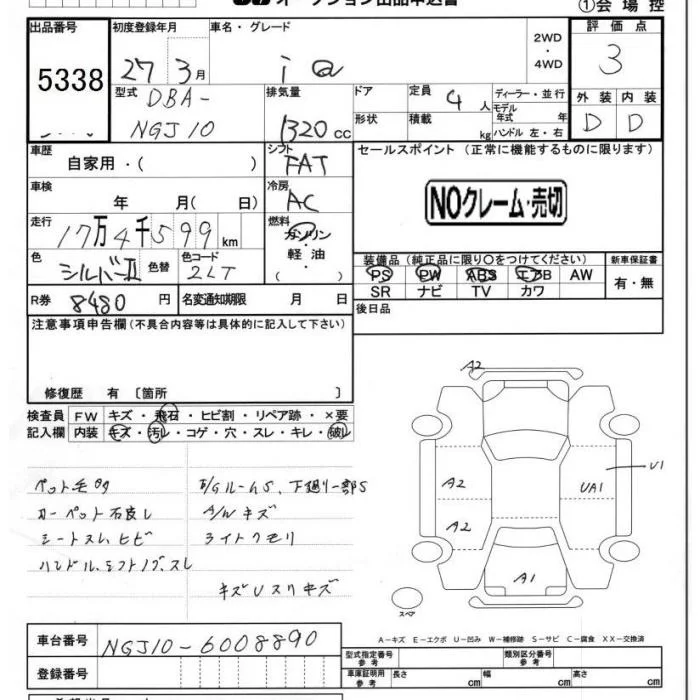 オークション出品申込書
①会場控
出品番号 初度登録年月 車名・グレード 評価点
5338 27 3月 i@ 2WD ・ 4WD 3
型式 排気量 ドア 定員 4人 ディーラー・並行
DBA- モデル年式 年 外装 内装
NGJ10 1320cc 形状 積載 kg ハンドル 左・右 D D
車歴 シフト セールスポイント (正常に機能するものに限ります)
自家用・( ) FAT
車検 冷房 NOクレーム・売切
年 月( 日) AC
走行 燃料
17万4千599km ガソリン
色 色替 色コード 軽油 装備品 (純正品に限り○をつけてください) 新車保証書
シルバーII 2LT ・( ) PS PW ABS エアB AW 有・無
SR ナビ TV カワ
R券 8480円 名変通知期限 月 日 後日品
注意事項申告欄(不具合内容等は具体的に記入して下さい)
修復歴 有 〔箇所 〕
検査員 FW キズ・飛石・ヒビ割・リペア跡・×要
記入欄 内装 キズ・汚レ・コゲ・穴・スレ・キレ・破レ
A2
ペット毛 下廻り一部S
カーペット A/W キズ
シートスレ、ヒビ ライトクモリ
ハンドル、シフトノブ、スレ
キズUスリキズ
A2
A2
UA1
U1
A1
スペア
A－キズ E－エクボ U－凹み W－補修跡 S－サビ C－腐食 XX－交換済
車台番号 NGJ10-6008890
型式指定番号 参考 類別区分番号 参考
登録番号 車庫証明用 参考 長さ cm 幅 cm 高さ cm